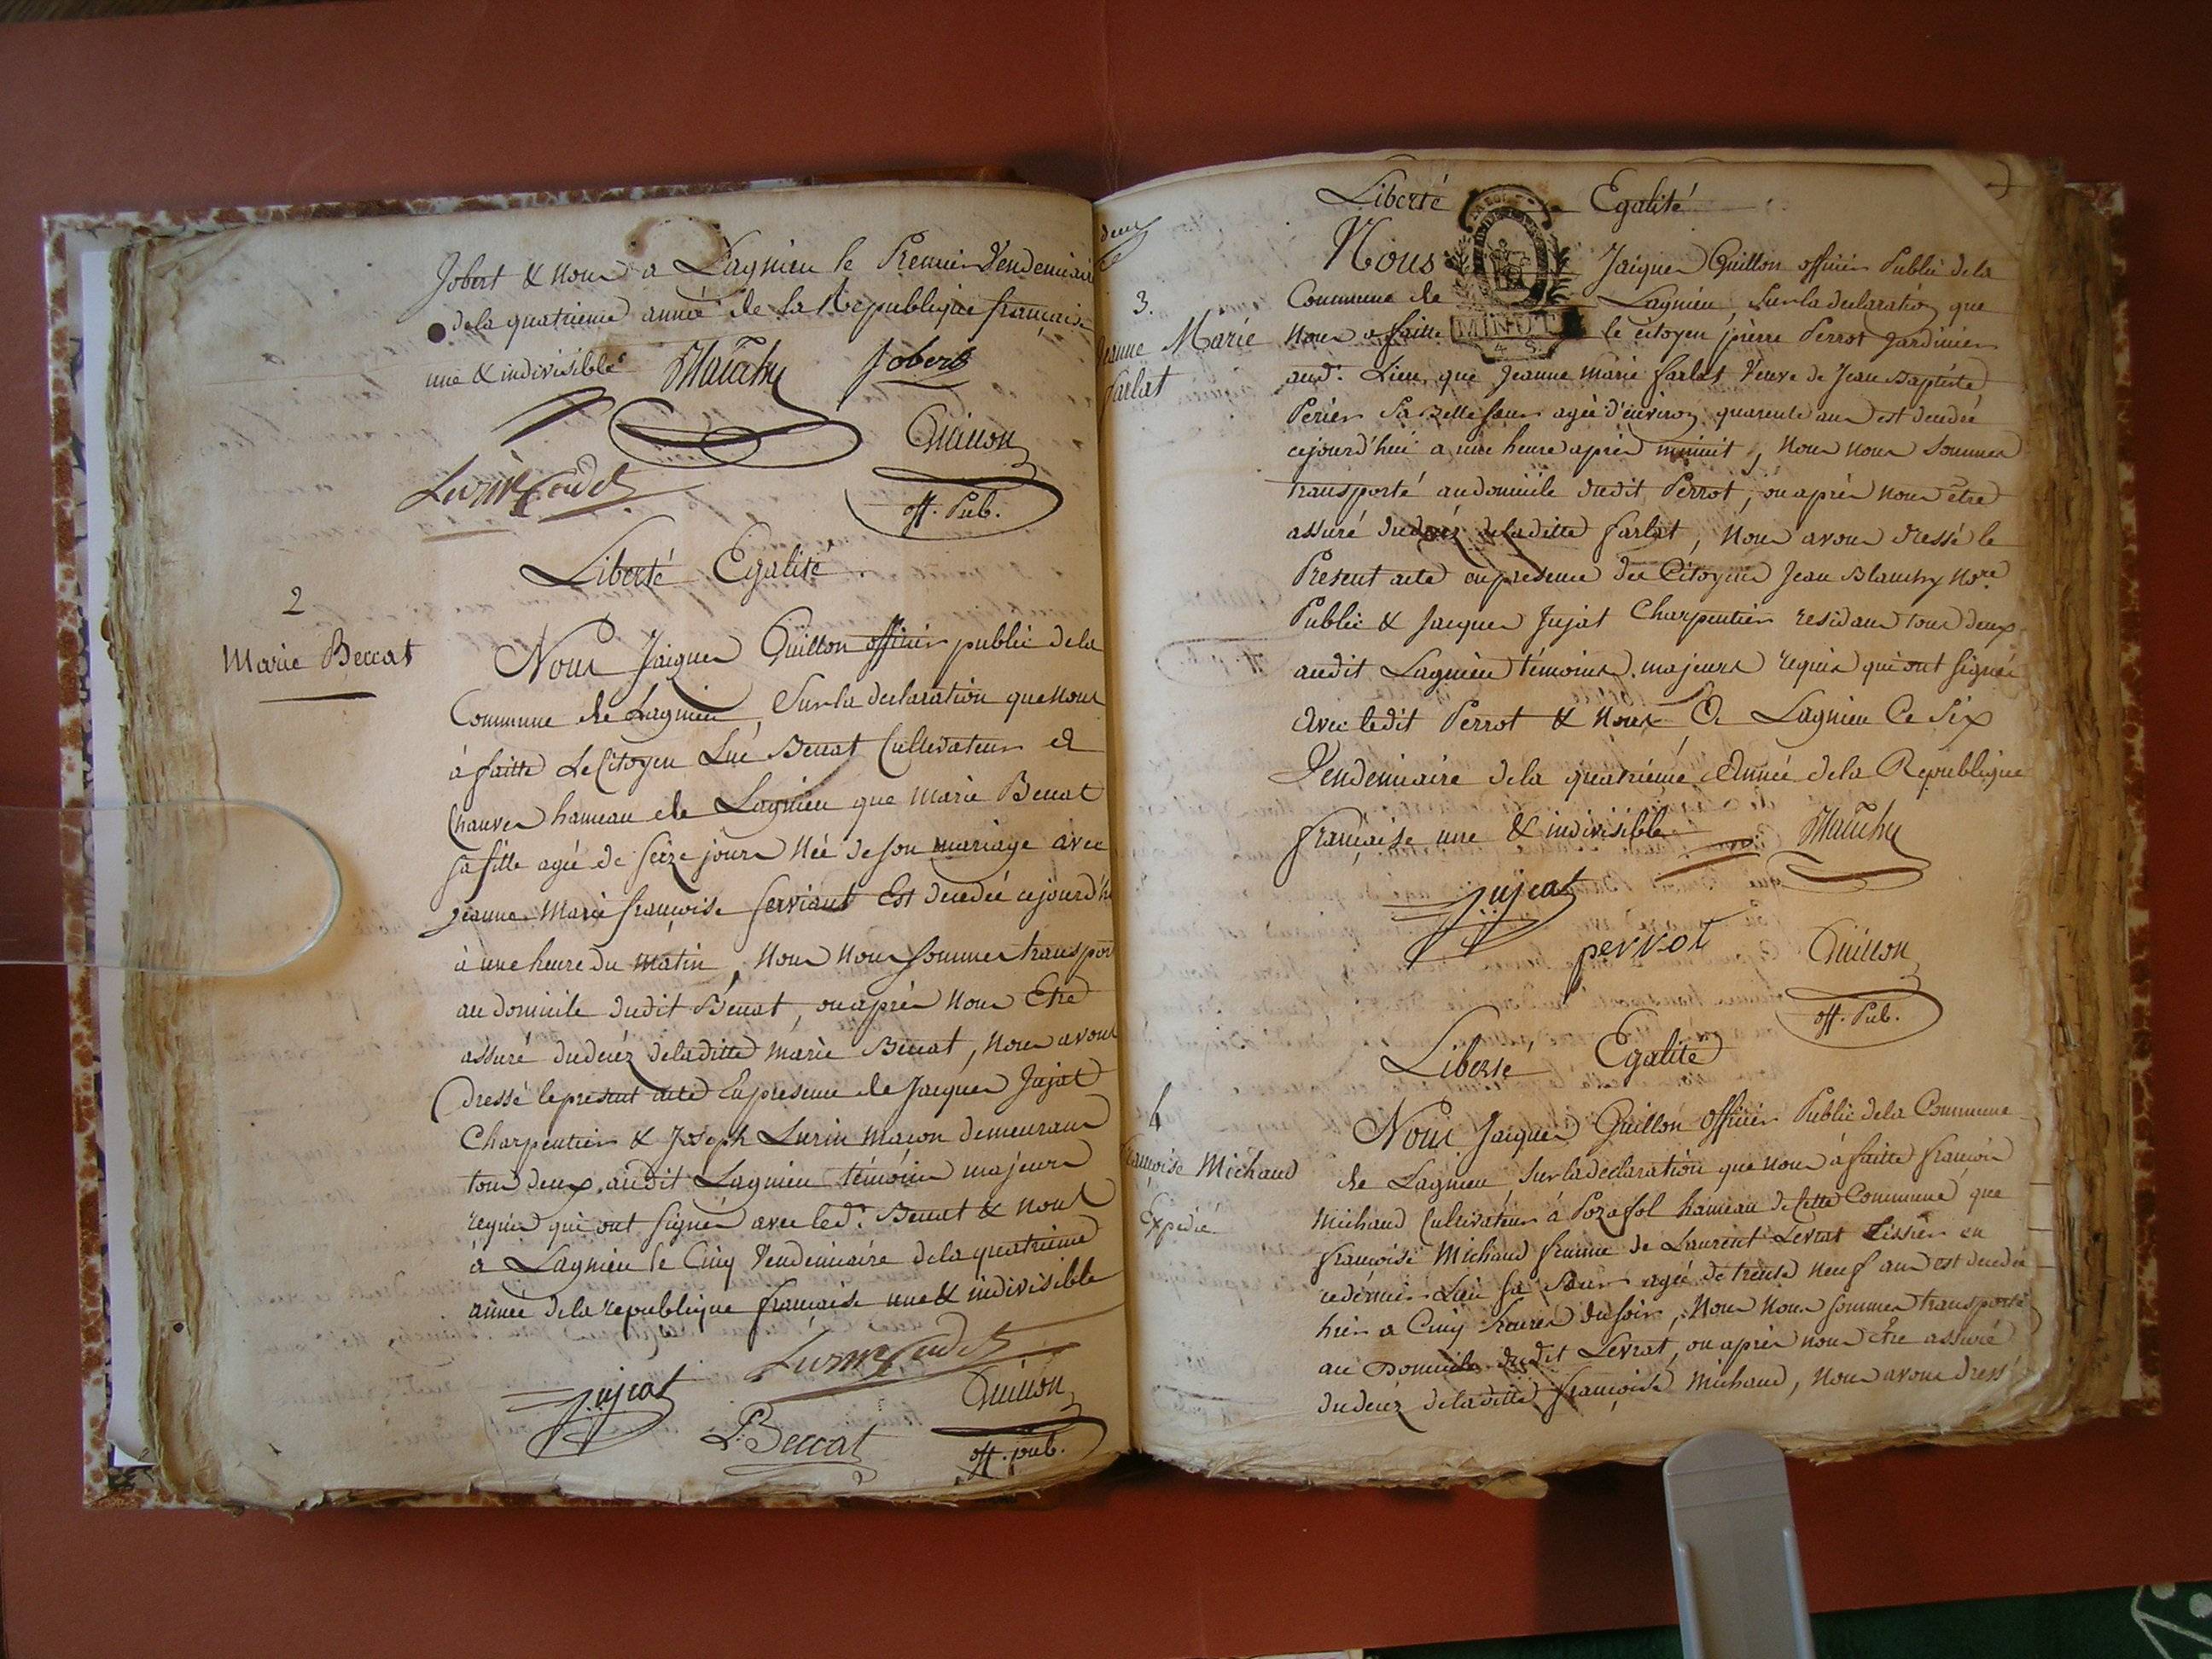 Jobert & nous a Lagnieu le Premier Vendemiair
de la quatrieme année de la Republique francaise
une & indivisible
Jobert
Guillon
off. Pub.
Liberté Egalité
2
Marie Beccat
Nous Jaiques Guillon officier public de la
Commune de Lagnieu, Sur la declaration que nous
à faitte Le Citoyen Luc Beccat Cultivateur à
Chanves hameau de Lagnieu que Marie Beccat
sa fille agée de seize jours Née de son mariage avec
jeanne Marie françoise Serviant Est decedée cejourd'h
à une heure du matin, Nous Nous sommes transpor
au domicile dudit Beccat, ou après nous Etre
assuré du decéz de laditte Marie Beccat, nous avons
Dressé le present acte En presence de Jacques Jujat
Charpentier & Joseph Lurin maçon demeurans
tous deux audit Lagnieu témoins majeurs
requis qui ont signés avec led.t Beccat & nous
à Lagnieu le Cinq Vendemiaire de la quatrieme
année de la republique française une & indivisible
Jujat
L. Beccat
Guillon
off. pub.
deux
Liberté Egalité
3.
Jeanne Marie
farlat
Nous Jaiques Guillon officier Public de la
Commune de Lagnieu, sur la declaration que
Nous a faitte le citoyen pierre Perrot Jardinier
aud.t Lieu, que Jeanne Marie farlat Veuve de Jean Baptiste
Perier sa belle soeur agée d'environ quarente ans est decedée
cejourd'hui a une heure après minuit, nous nous sommes
transporté au domicile dudit Perrot, ou après nous être
assuré du decéz de laditte farlat, Nous avons dressé le
Present acte en presence des Citoyens Jean Blanchy No.re
Public & Jacques Jujat Charpentier residans tous deux
audit Lagnieu témoins majeurs requis qui ont signé
avec ledit Perrot & Nous A Lagnieu Ce Six
Vendemiaire de la quatriéme Année de la Republique
française une & indivisible
MINUT
Jujeat
perrot
Guillon
off. Pub.
Liberté Egalité
4
françoise Michaud
Expedié
Nous Jaiques Guillon Officier Public de la Commune
de Lagnieu, sur la declaration que nous à faitte françois
Michaud Cultivateur à Pozafol hameau de Cette Commune, que
françoise Michaud femme de Laurent Levrat Tissier en
cedernier Lieu sa Soeur agée de trente neuf ans est decedée
hier a Cinq heures du soir, Nous Nous sommes transporté
au Domicile dudit Levrat, ou après nous être assuré
du decéz de laditte françoise Michaud, nous avons dressé